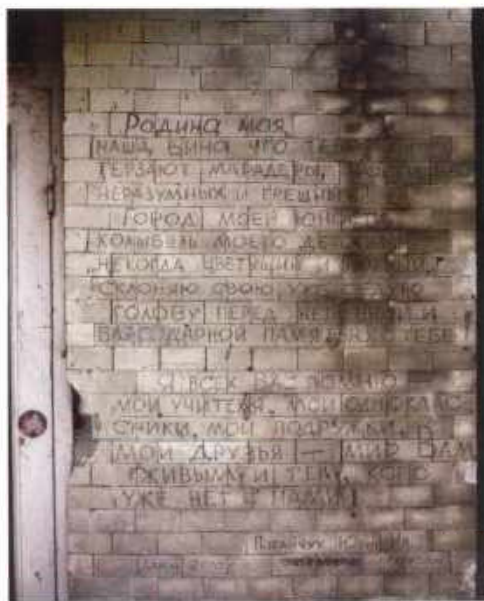 РОДИНА МОЯ
НАША ВИНА ЧТО
ТЕРЗАЮТ МАРАДЕРЫ,
НЕРАЗУМНЫХ И ГРЕШНЫХ
ГОРОД МОЕЙ ЮНОСТИ
КОЛЫБЕЛЬ МОЕГО ДЕТСТВА
НЕКОГДА ЦВЕТУЩИЙ И
СКЛОНЯЮ СВОЮ УЖЕ СЕДУЮ
ГОЛОВУ ПЕРЕД И
БЛАГОДАРНОЙ ПАМЯТЬЮ О ТЕБЕ!
Я ВСЕХ ВАС ПОМНЮ
МОИ УЧИТЕЛЯ, МОИ ОДНОКЛАС-
СНИКИ, МОИ ПОДРУЖКИ,
МОИ ДРУЗЬЯ — МИР ВАМ
ЖИВЫМ И ТЕМ, КОГО
УЖЕ НЕТ С НАМИ!